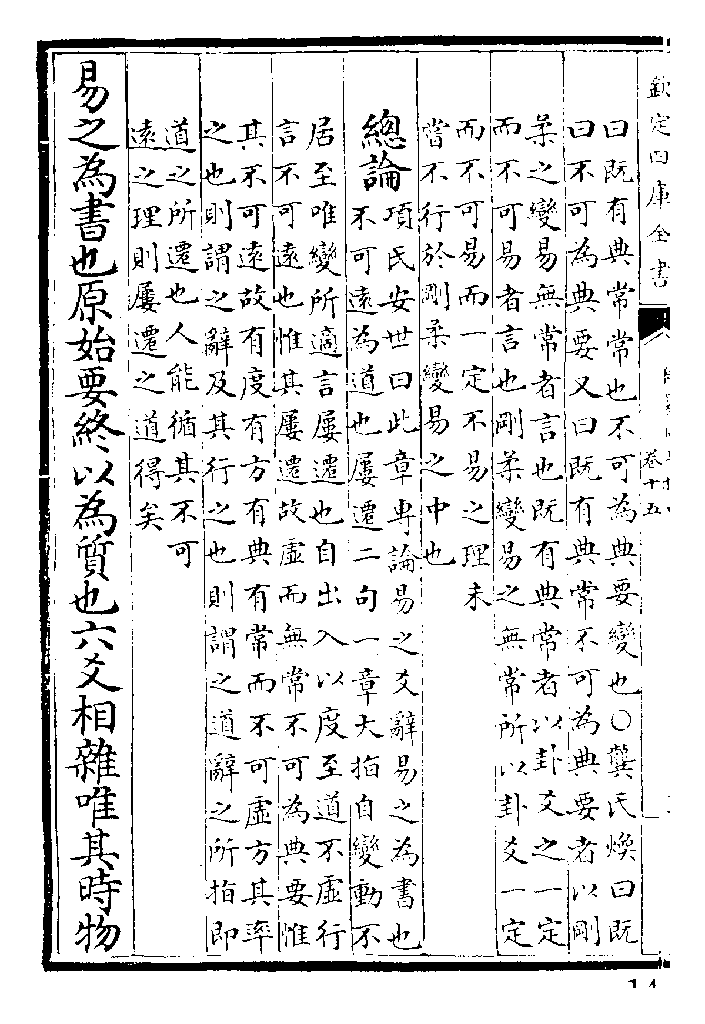 欽定四庫全書
卷十五
曰既有典常常也不可為典要變也○龔氏煥曰既
曰不可為典要又曰既有典常不可為典要者以剛
柔之變易無常者言也既有典常者以卦爻之一定
而不可易者言也剛柔變易之無常所以卦爻一定
而不可易而一定不易之理未
嘗不行於剛柔變易之中也
總論項氏安世曰此章專論易之爻辭易之為書也
不可遠為道也屢遷二句一章大指自變動不
居至唯變所適言屢遷也自出入以度至道不虛行
言不可遠也惟其屢遷故虛而無常不可為典要惟
其不可遠故有度有方有典有常而不可虛方其率
之也則謂之辭及其行之也則謂之道辭之所指即
道之所遷也人能循其不可
遠之理則屢遷之道得矣
易之為書也原始要終以為質也六爻相雜唯其時物